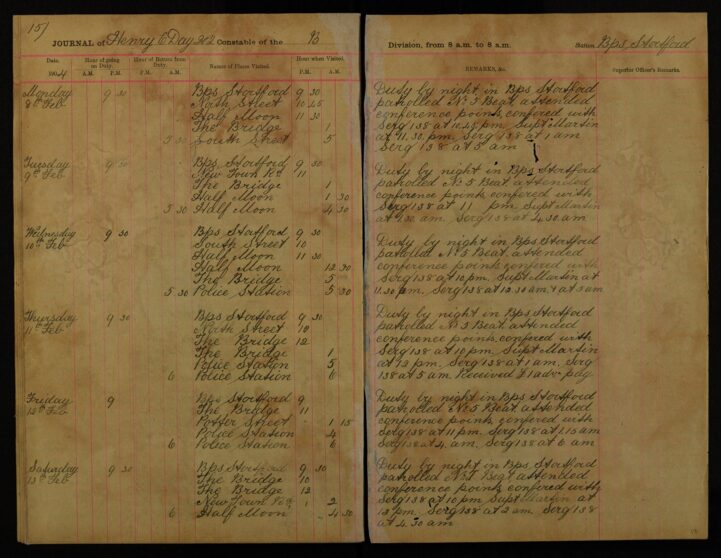 151
JOURNAL of Henry E Day 202 Constable of the B
Date. Hour of going on Duty. Hour of Return from Duty. Names of Places Visited. Hour when Visited.
1904 A.M. P.M. A.M. P.M. P.M. A.M.
Monday 9 30 Bps Stortford 9 30
8th Feb North Street 10 45
Half Moon 11 30
The Bridge 1
5 30 South Street 5
Tuesday 9 30 Bps Stortford 9 30
9th Feb New Town Rd 11
The Bridge 1
Half Moon 1 30
5 30 Half Moon 4 30
Wednesday 9 30 Bps Stortford 9 30
10th Feb South Street 10
Half Moon 11 30
Half Moon 12 30
The Bridge 5
5 30 Police Station 5 30
Thursday 9 30 Bps Stortford 9 30
11th Feb North Street 10
The Bridge 12
The Bridge 1
Police Station 5
6 Police Station 6
Friday 9 Bps Stortford 9
12th Feb The Bridge 11
Potter Street 1 15
Police Station 4
6 Police Station 6
Saturday 9 30 Bps Stortford 9 30
13th Feb The Bridge 10
The Bridge 12
New Town Rd 2
6 Half Moon 4 30
Division, from 8 a.m. to 8 a.m. Station Bps Stortford
REMARKS, &c. Superior Officer's Remarks.
Duty by night in Bps Stortford
patrolled No 3 Beat attended
conference points confered with
Serg 138 at 10.45 pm. Supt Martin
at 11.30 pm. Serg 138 at 1 am
Serg 138 at 5 am
Duty by night in Bps Stortford
patrolled No 5 Beat attended
conference points confered with
Serg 138 at 11 pm Supt Martin
at 1.30 am. Serg 138 at 4.30 am
Duty by night in Bps Stortford
patrolled No 5 Beat attended
conference points confered with
Serg 138 at 10 pm. Supt Martin at
11.30 pm. Serg 138 at 12.30 am & at 5 am
Duty by night in Bps Stortford
patrolled No 3 Beat attended
conference points confered with
Serg 138 at 10 pm. Supt Martin
at 12 pm. Serg 138 at 1 am. Serg
138 at 5 am Received £1 adv pay
Duty by night in Bps Stortford
patrolled No 5 Beat attended
conference points confered with
Serg 138 at 11 pm. Serg 138 at 1.15 am
Serg 138 at 4 am. Serg 138 at 6 am
Duty by night in Bps Stortford
patrolled Beat attended
conference points confered with
Serg 138 at 10 pm Supt Martin at
12 pm. Serg 138 at 2 am. Serg 138
at 4.30 am